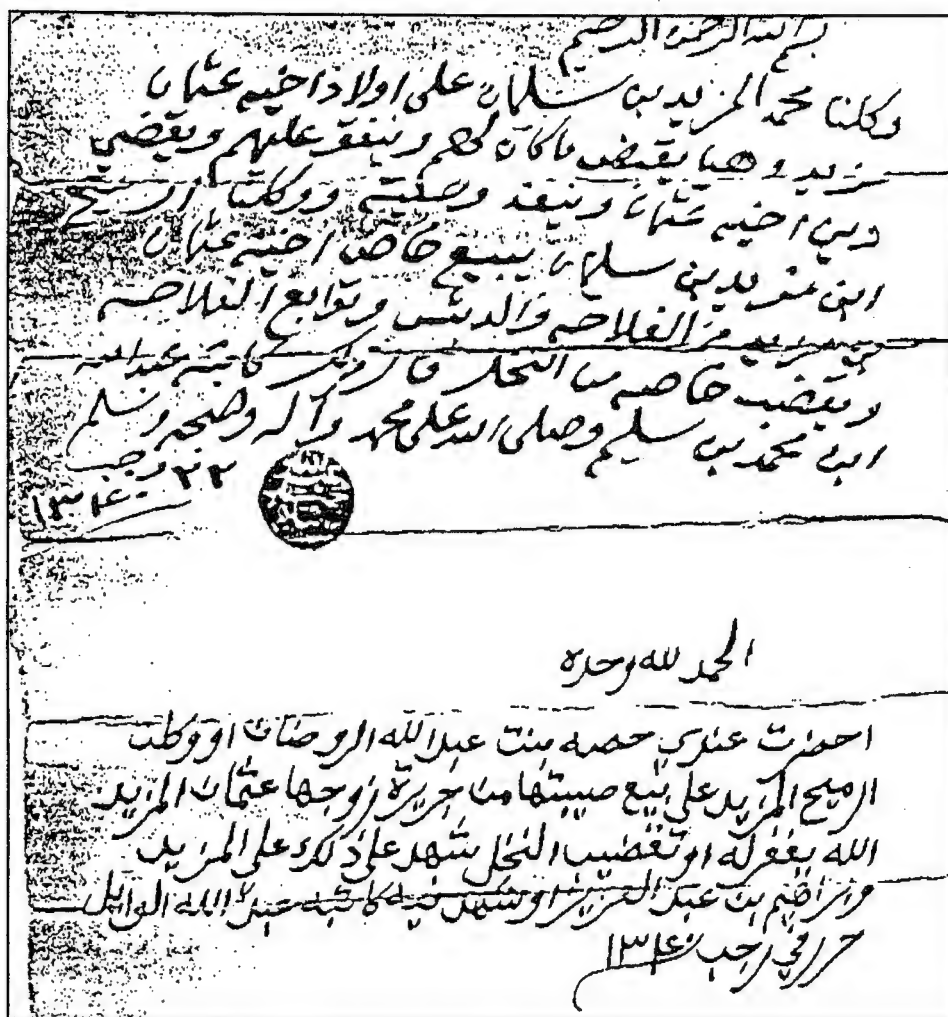 بسم الله الرحمن الرحيم
وكلنا محمد المزيد بن سلمان على اولاد اخيه عثمان
يقبض ماكان لهم وينفق عليهم ويقضي
دين اخيه عثمان وينفذ وصيته ووكلنا
ابن مزيد بن سلمان يبيع خاص اخيه عثمان
من الفلاحه والدبش وتوابع الفلاحه
خاصه من النخل قال ذلك كاتبه عبدالله
ابن محمد بن سليم وصلى الله على محمد وآله وصحبه وسلم
٢٢ رجب
١٣٤٠
الحمد لله وحده
احضرت عندي حصه بنت عبدالله الروضان اووكلت
الرميح المزيد على بيع صيبتها من جريرة زوجها عثمان المزيد
الله يغفرله او تقضيب النخل شهد على ذلك على المزيد
وابراهيم بن عبد العزيز اوشهد به كاتبه عبد الله الوايل
حرر في رجب ١٣٤٠